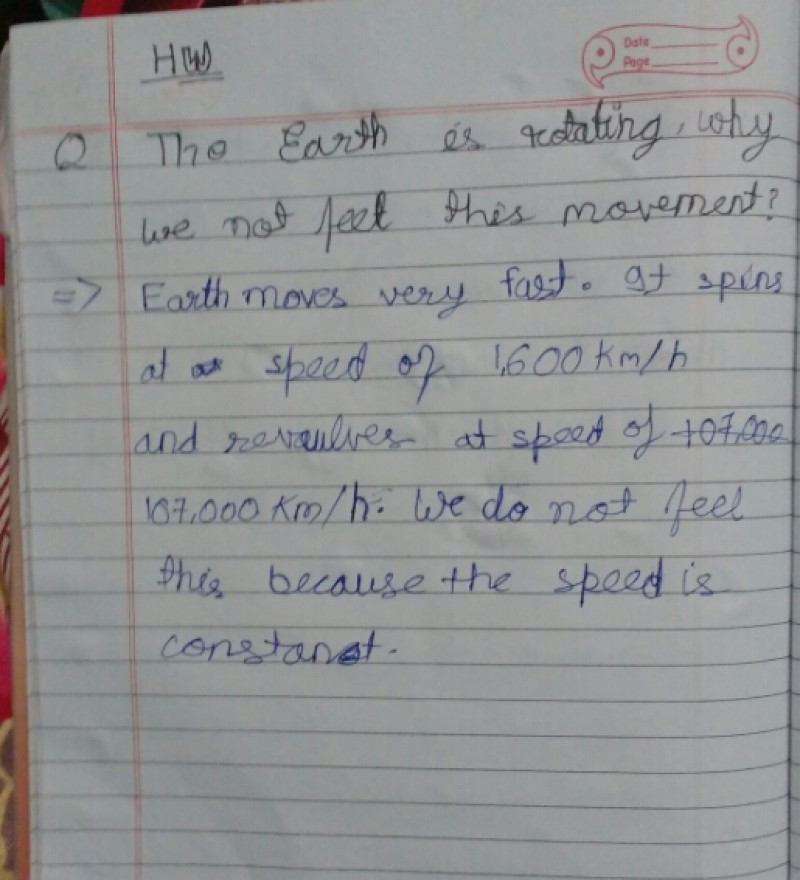 HW
Date
Page
Q The Earth is rotating, why
we not feel this movement?
=> Earth moves very fast. It spins
at speed of 1,600 km/h
and revaulves at speed of 107,000
107,000 Km/h. We do not feel
this because the speed is
constanat.